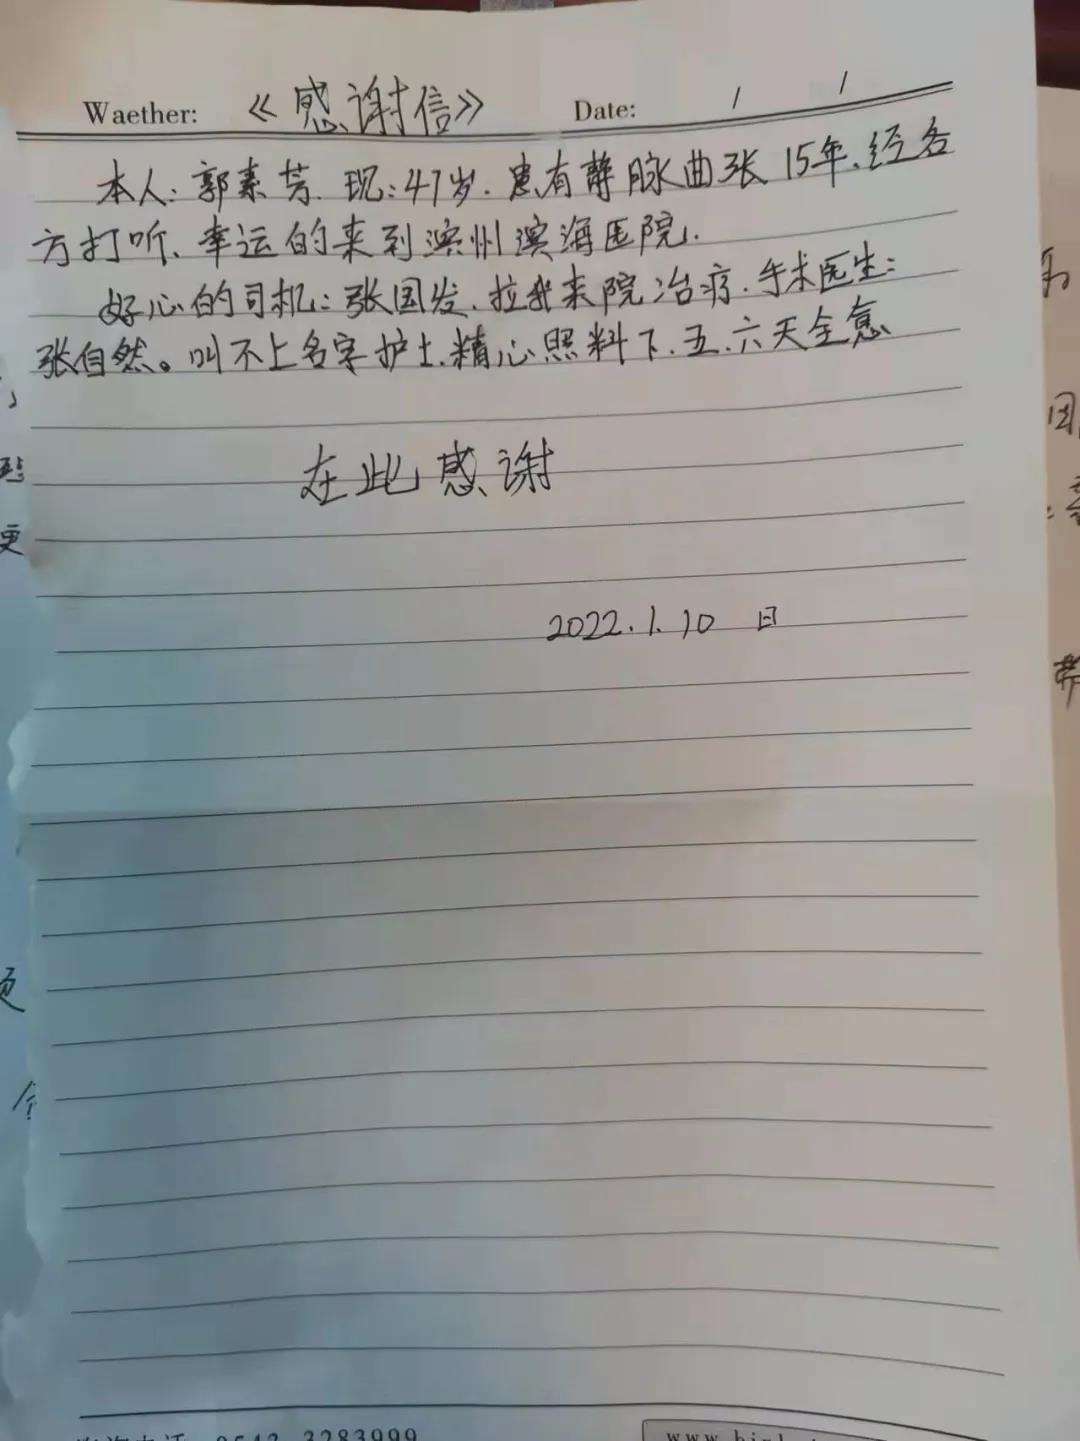 Waether: 《感谢信》 Date: / /
本人:郭素芳.现:47岁.患有静脉曲张15年、经各
方打听、幸运的来到滨州滨海医院.
好心的司机:张国发.拉我来院治疗.手术医生:
张自然。叫不上名字护士.精心照料下.五.六天全愈
在此感谢
2022.1.10 日
0543 3283999
更